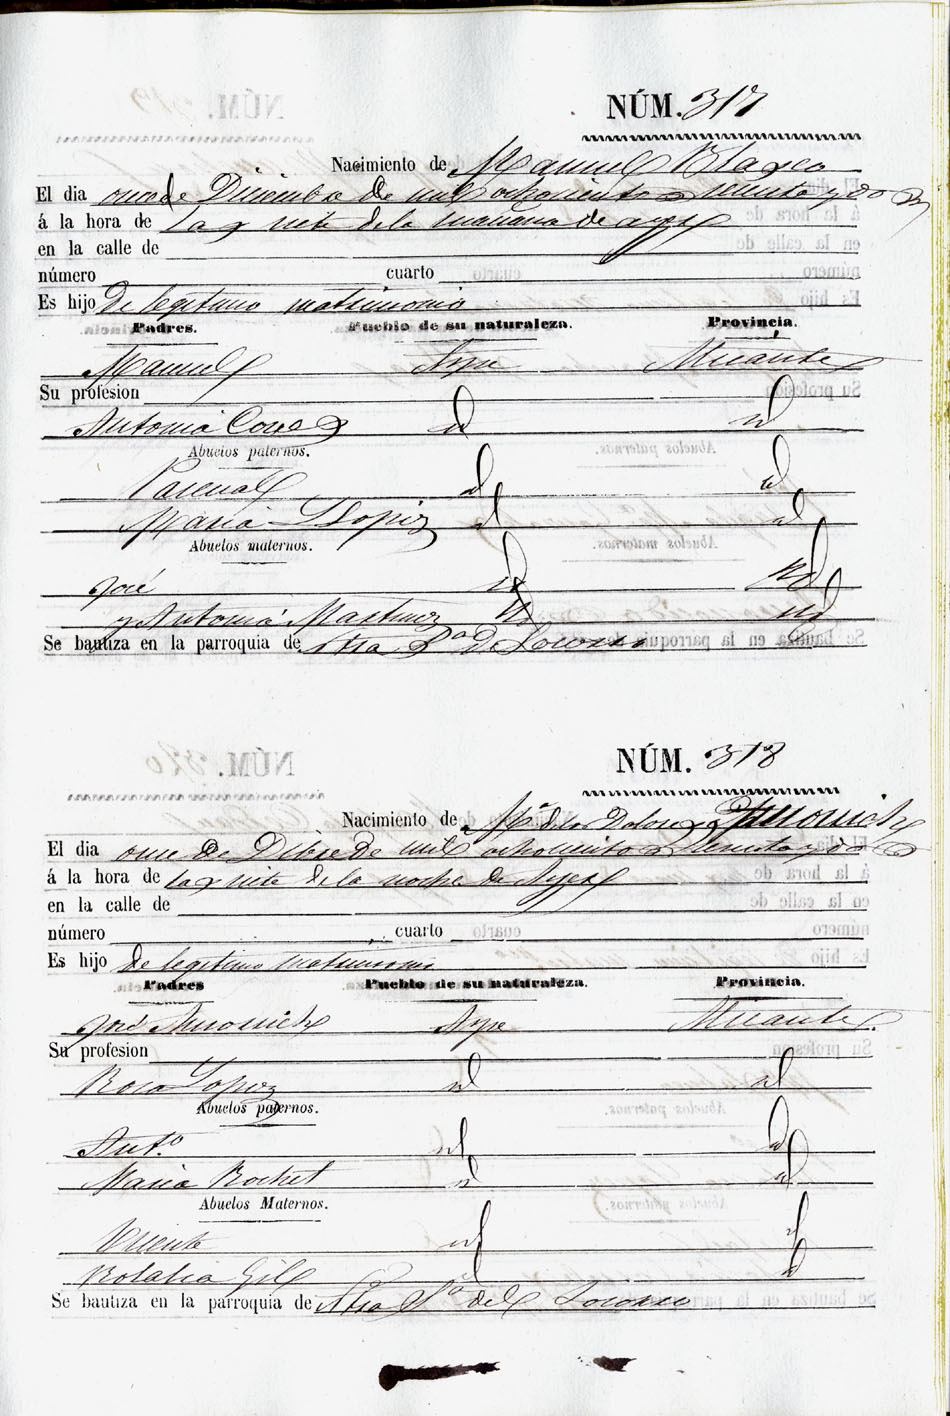 NÚM. 317
Nacimiento de Manuel Blasco
El dia once de Diciembre de mil ochocientos setenta y dos
á la hora de las siete de la mañana de ayer
en la calle de
número cuarto
Es hijo de legitimo matrimonio
Padres. Pueblo de su naturaleza. Provincia.
Manuel Aspe Alicante
Su profesion
Antonia id id
Abuelos paternos.
Pascual id id
Maria Llopiz id id
Abuelos maternos.
José id id
y Antonia Martinez id id
Se bautiza en la parroquia de Ntra Sª del Socorro
NÚM. 318
Nacimiento de Mª de los Dolores
El dia once de Dibre de mil ochocientos setenta y dos
á la hora de las siete de la noche de Ayer
en la calle de
número cuarto
Es hijo de legitimo matrimonio
Padres Pueblo de su naturaleza. Provincia.
José Aspe Alicante.
Su profesion
Rosa Lopez id id
Abuelos paternos.
Antº id id
Maria id id
Abuelos Maternos.
Vicente id id
Rosalia Gil id
Se bautiza en la parroquia de Ntra Sª del Socorro